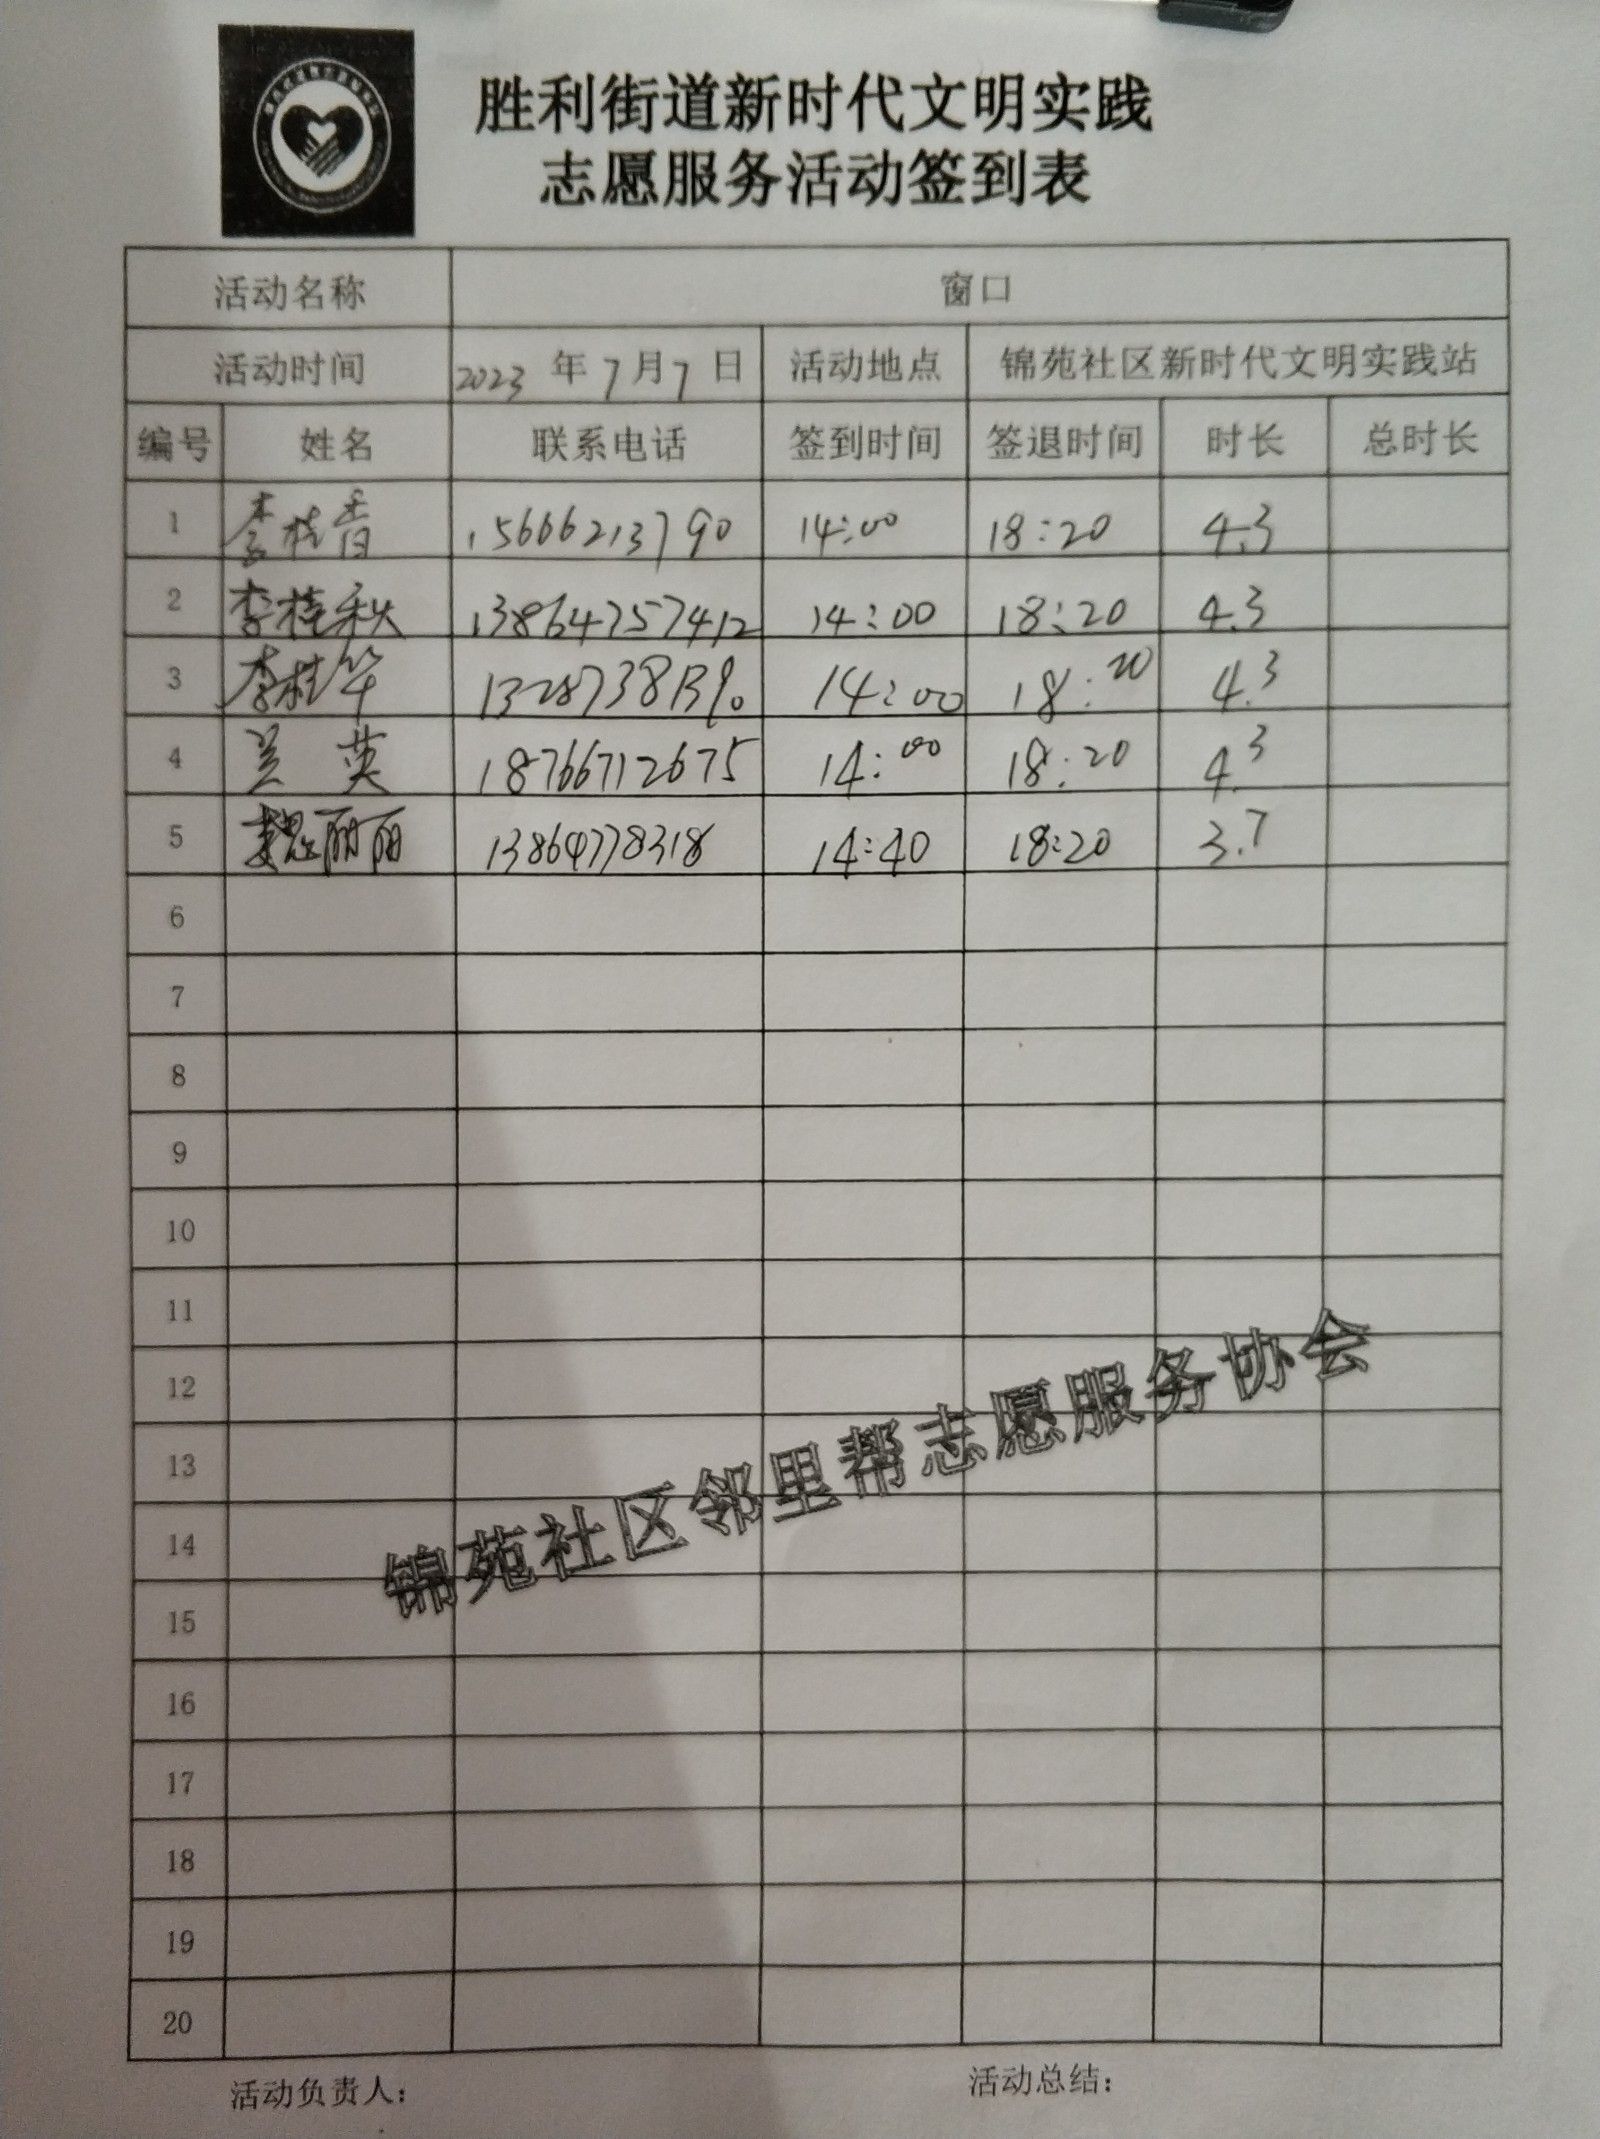 胜利街道新时代文明实践
志愿服务活动签到表
活动名称 窗口
活动时间 2023年7月7日 活动地点 锦苑社区新时代文明实践站
编号 姓名 联系电话 签到时间 签退时间 时长 总时长
1 李桂香 15666213790 14:00 18:20 4.3
2 李桂秋 13864757412 14:00 18:20 4.3
3 李桂华 14:00 18:20 4.3
4 兰英 18766712675 14:00 18:20 4.3
5 魏丽丽 13864778318 14:40 18:20 3.7
6
7
8
9
10
11
12
13
14
15
16
17
18
19
20
锦苑社区邻里帮志愿服务协会
活动负责人: 活动总结: